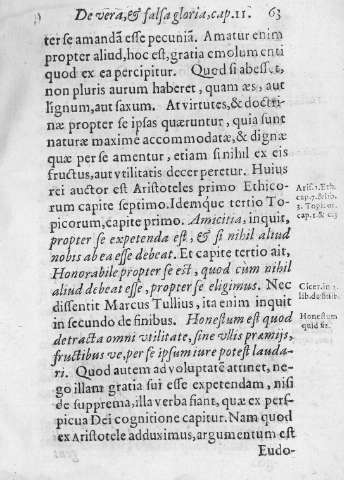 De vera, & falsa gloria, cap. 11. 63
ter se amandā esse pecuniā. Amatur enim
propter aliud, hoc est, gratia emolumenti
quod ex ea percipitur. Quod si abesset,
non pluris aurum haberet, quam æs, aut
lignum, aut saxum. At virtutes, & doctri-
næ propter se ipsas quæruntur, quia sunt
naturæ maxime accommodatæ, & dignæ
quæ per se amentur, etiam si nihil ex eis
fructus, aut vtilitatis decerperetur. Huius
rei auctor est Aristoteles primo Ethico-
rum capite septimo. Idemque tertio To-
picorum, capite primo. Amicitia, inquit,
propter se expetenda est, & si nihil aliud
nobis ab ea esse debeat. Et capite tertio ait,
Honorabile propter se est, quod cum nihil
aliud debeat esse, propter se eligimus. Nec
dissentit Marcus Tullius, ita enim inquit
in secundo de finibus. Honestum est quod
detracta omni vtilitate, sine vllis præmijs,
fructibus ve, per se ipsum iure potest lauda-
ri. Quod autem ad voluptatē attinet, ne-
go illam gratia sui esse expetendam, nisi
de suprema, illa verba fiant, quæ ex pers-
picua Dei cognitione capitur. Nam quod
ex Aristotele adduximus, argumentum est
Eudo-
Aris. 1. Eth.
cap. 7. & lib.
3. Topicor.
cap. 1. & c. 3
Cicer. in 2.
lib. de finib.
Honestum
quid sit.